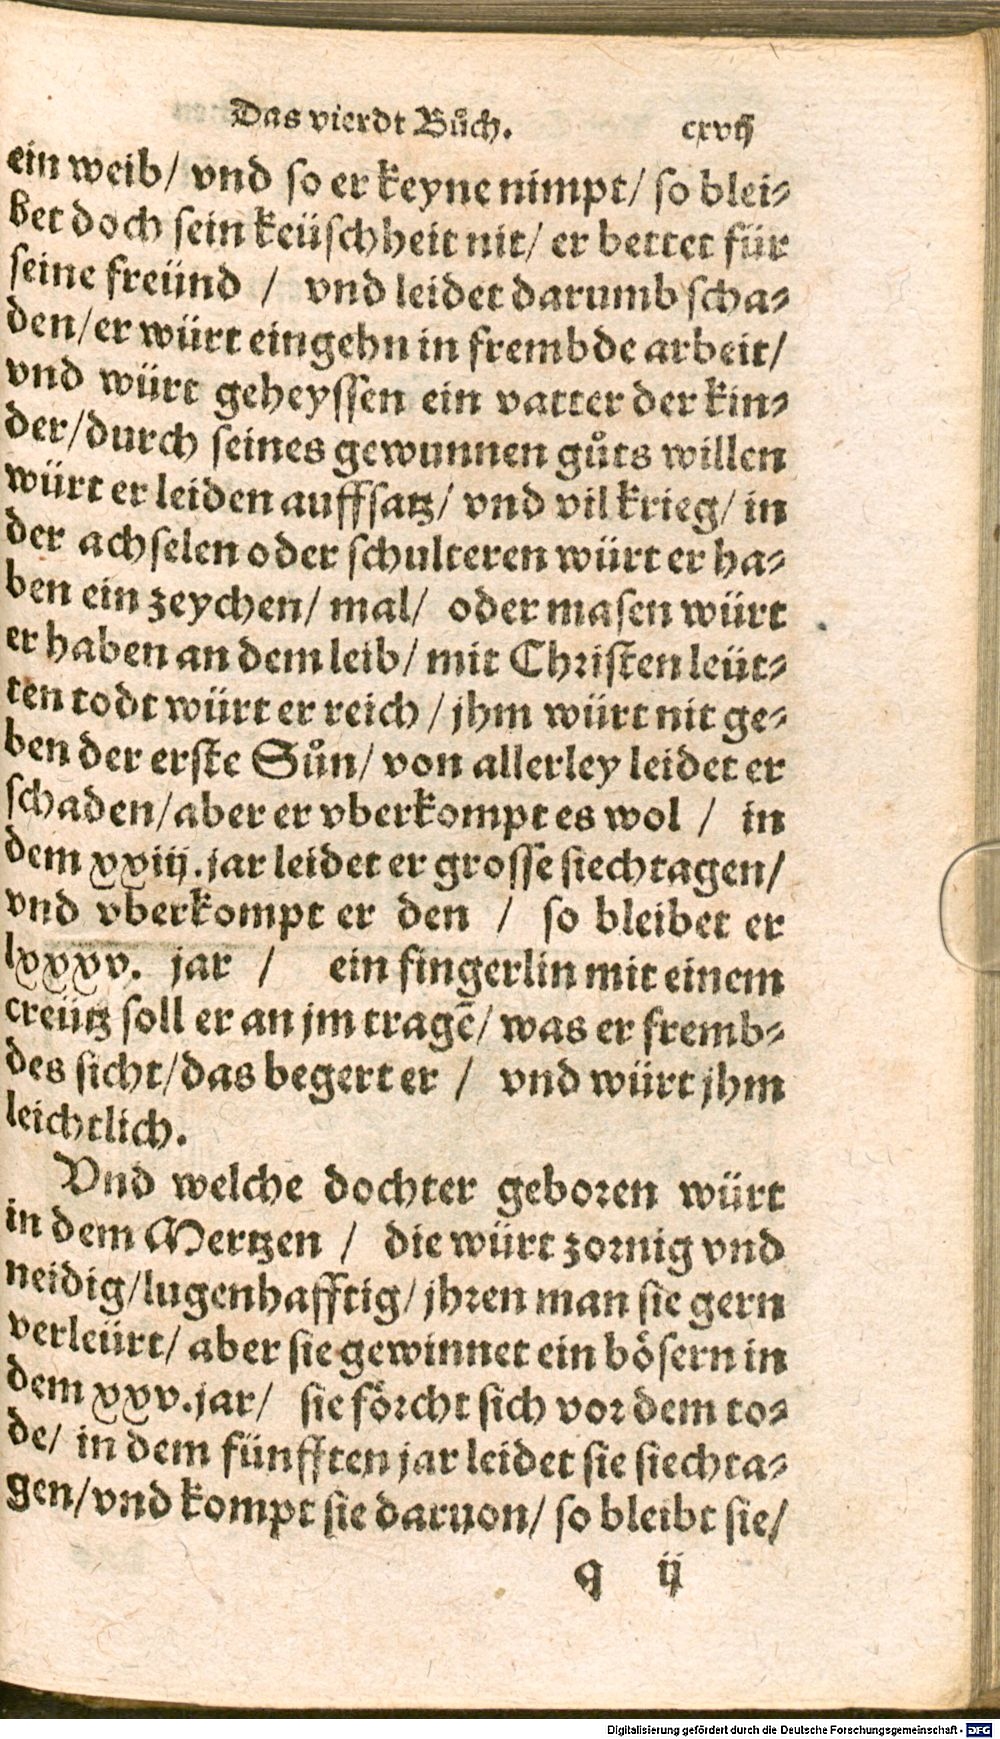 Das vierdt Bůch. cxvij
ein weib/ vnd so er keyne nimpt/ so blei⸗
bet doch sein keüschheit nit/ er bettet für
seine freünd / vnd leidet darumb scha⸗
den/er würt eingehn in frembde arbeit/
vnd würt geheyssen ein vatter der kin⸗
der/durch seines gewunnen gůts willen
würt er leiden auffsatz/ vnd vil krieg/ in
der achselen oder schulteren würt er ha⸗
ben ein zeychen/ mal/ oder masen würt
er haben an dem leib/ mit Christen leüt⸗
ten todt würt er reich / jhm würt nit ge⸗
ben der erste Sůn/ von allerley leidet er
schaden/aber er vberkompt es wol / in
dem xxviij.jar leidet er grosse siechtagen/
vnd vberkompt er den / so bleibet er
lxxxv. jar / ein fingerlin mit einem
creütz soll er an jm tragē/ was er fremb⸗
des sicht/das begert er / vnd würt jhm
leichtlich.
Vnd welche dochter geboren würt
in dem Mertzen / die würt zornig vnd
neidig/lugenhafftig/ jhren man sie gern
verleürt/ aber sie gewinnet ein bösern in
dem xxv.jar/ sie förcht sich vor dem to⸗
de/ in dem fünfften jar leidet sie siechta⸗
gen/vnd kompt sie daruon/ so bleibt sie/
q ij
Digitalisierung gefördert durch die Deutsche Forschungsgemeinschaft - DFG